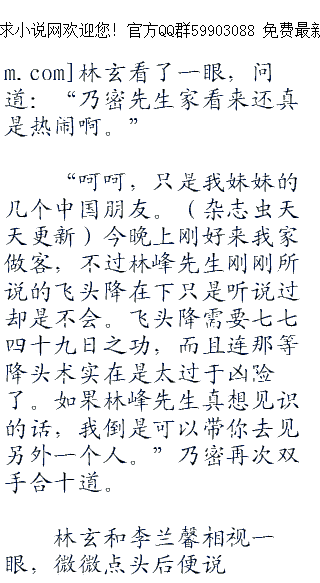 求小说网欢迎您！官方QQ群59903088 免费最新
m.com]林玄看了一眼，问
道：“乃密先生家看来还真
是热闹啊。”
“呵呵，只是我妹妹的
几个中国朋友。（杂志虫天
天更新）今晚上刚好来我家
做客，不过林峰先生刚刚所
说的飞头降在下只是听说过
却是不会。飞头降需要七七
四十九日之功，而且连那等
降头术实在是太过于凶险
了。如果林峰先生真想见识
的话，我倒是可以带你去见
另外一个人。”乃密再次双
手合十道。
林玄和李兰馨相视一
眼，微微点头后便说